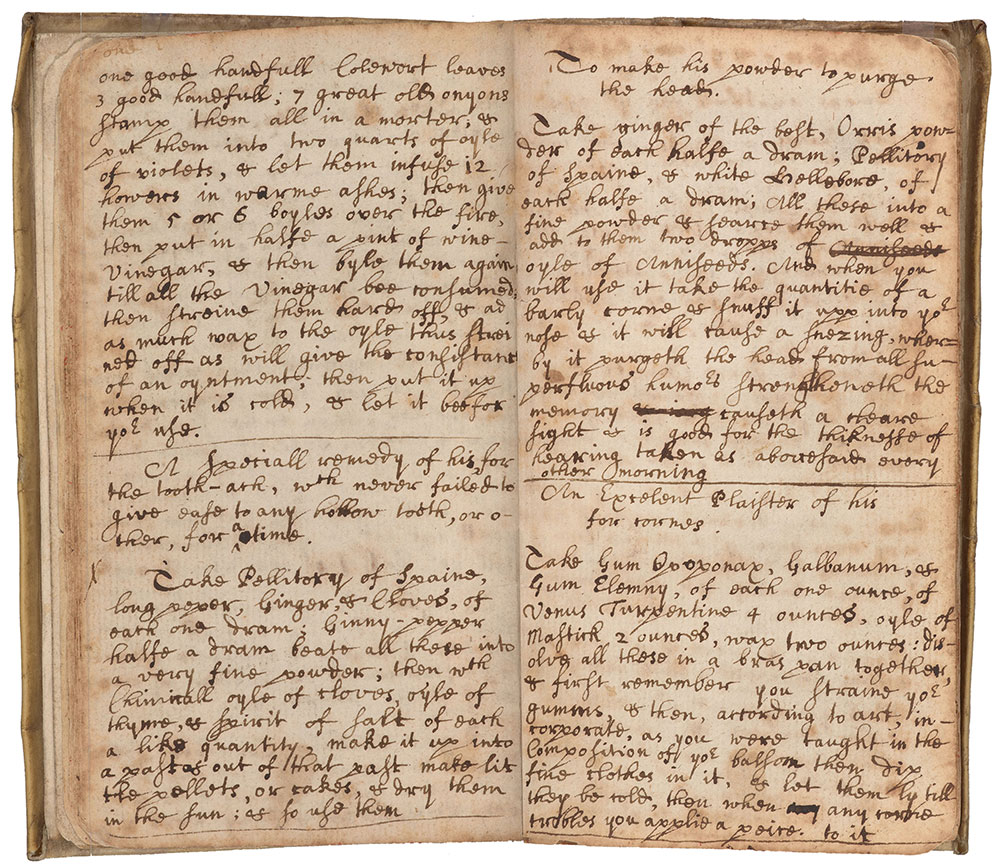 one good handfull Colewort leaves
3 good handfull; 7 great old onyons
stamp them all in a morter, &
put them into two quarts of oyle
of violets, & let them infuse 12
howers in warme ashes; then give
them 5 or 6 boyles over the fire,
then put in halfe a pint of wine-
vinegar, & then boyle them again
till all the vinegar bee consumed;
then streine them hard off, & ad
as much wax to the oyle thus strei
ned off as will give the consistanc
of an oyntment; then put it up
when it is cold, & let it bee for
yor use.
A Speciall remedy of his for
the tooth-ack, wch never failed to
give ease to any hollow tooth, or o-
ther, for a time.
Take Pellitory of Spaine,
long peper, Ginger, & Cloves, of
each one dram; Ginny-pepper
halfe a dram beate all these into
a very fine powder; then wth
Chimicall oyle of cloves, oyle of
thyme, & spirit of salt of each
a like quantity, make it up into
a past & out of that past make lit
tle pellets, or cakes, & dry them
in the sun; & so use them
To make his powder to purge
the head.
Take ginger of the best, Orris pow-
der of each halfe a dram; Pellitory
of Spaine, & white Hellebore, of
each halfe a dram; All these into a
fine powder & searce them well &
add to them two dropps of Anniseeds
oyle of Anniseeds. And when you
will use it take the quantitie of a
barly corne & snuff it upp into yor
nose & it will cause a snezing, wher-
by it purgeth the head from all su-
perfluous humors strengtheneth the
memory causeth a cleare
sight & is good for the thiknesse of
hearing taken as abovesaid every
other morning
An Excelent Plaister of his
for cornes.
Take Gum Opoponax, Galbanum, &
Gum Elemny, of each one ounce, of
Venus Turpentine 4 ounces, oyle of
Mastick 2 ounces, wax two ounces: dis-
olve all these in a bras pan together,
& first remember you straine yor
gumms, & then, according to art, in-
corporate, as you were taught in the
Composition off yor balsom then dip
fine clothes in it, & let them ly till
they be cold, then when any corne
trobles you applie a peice. to it